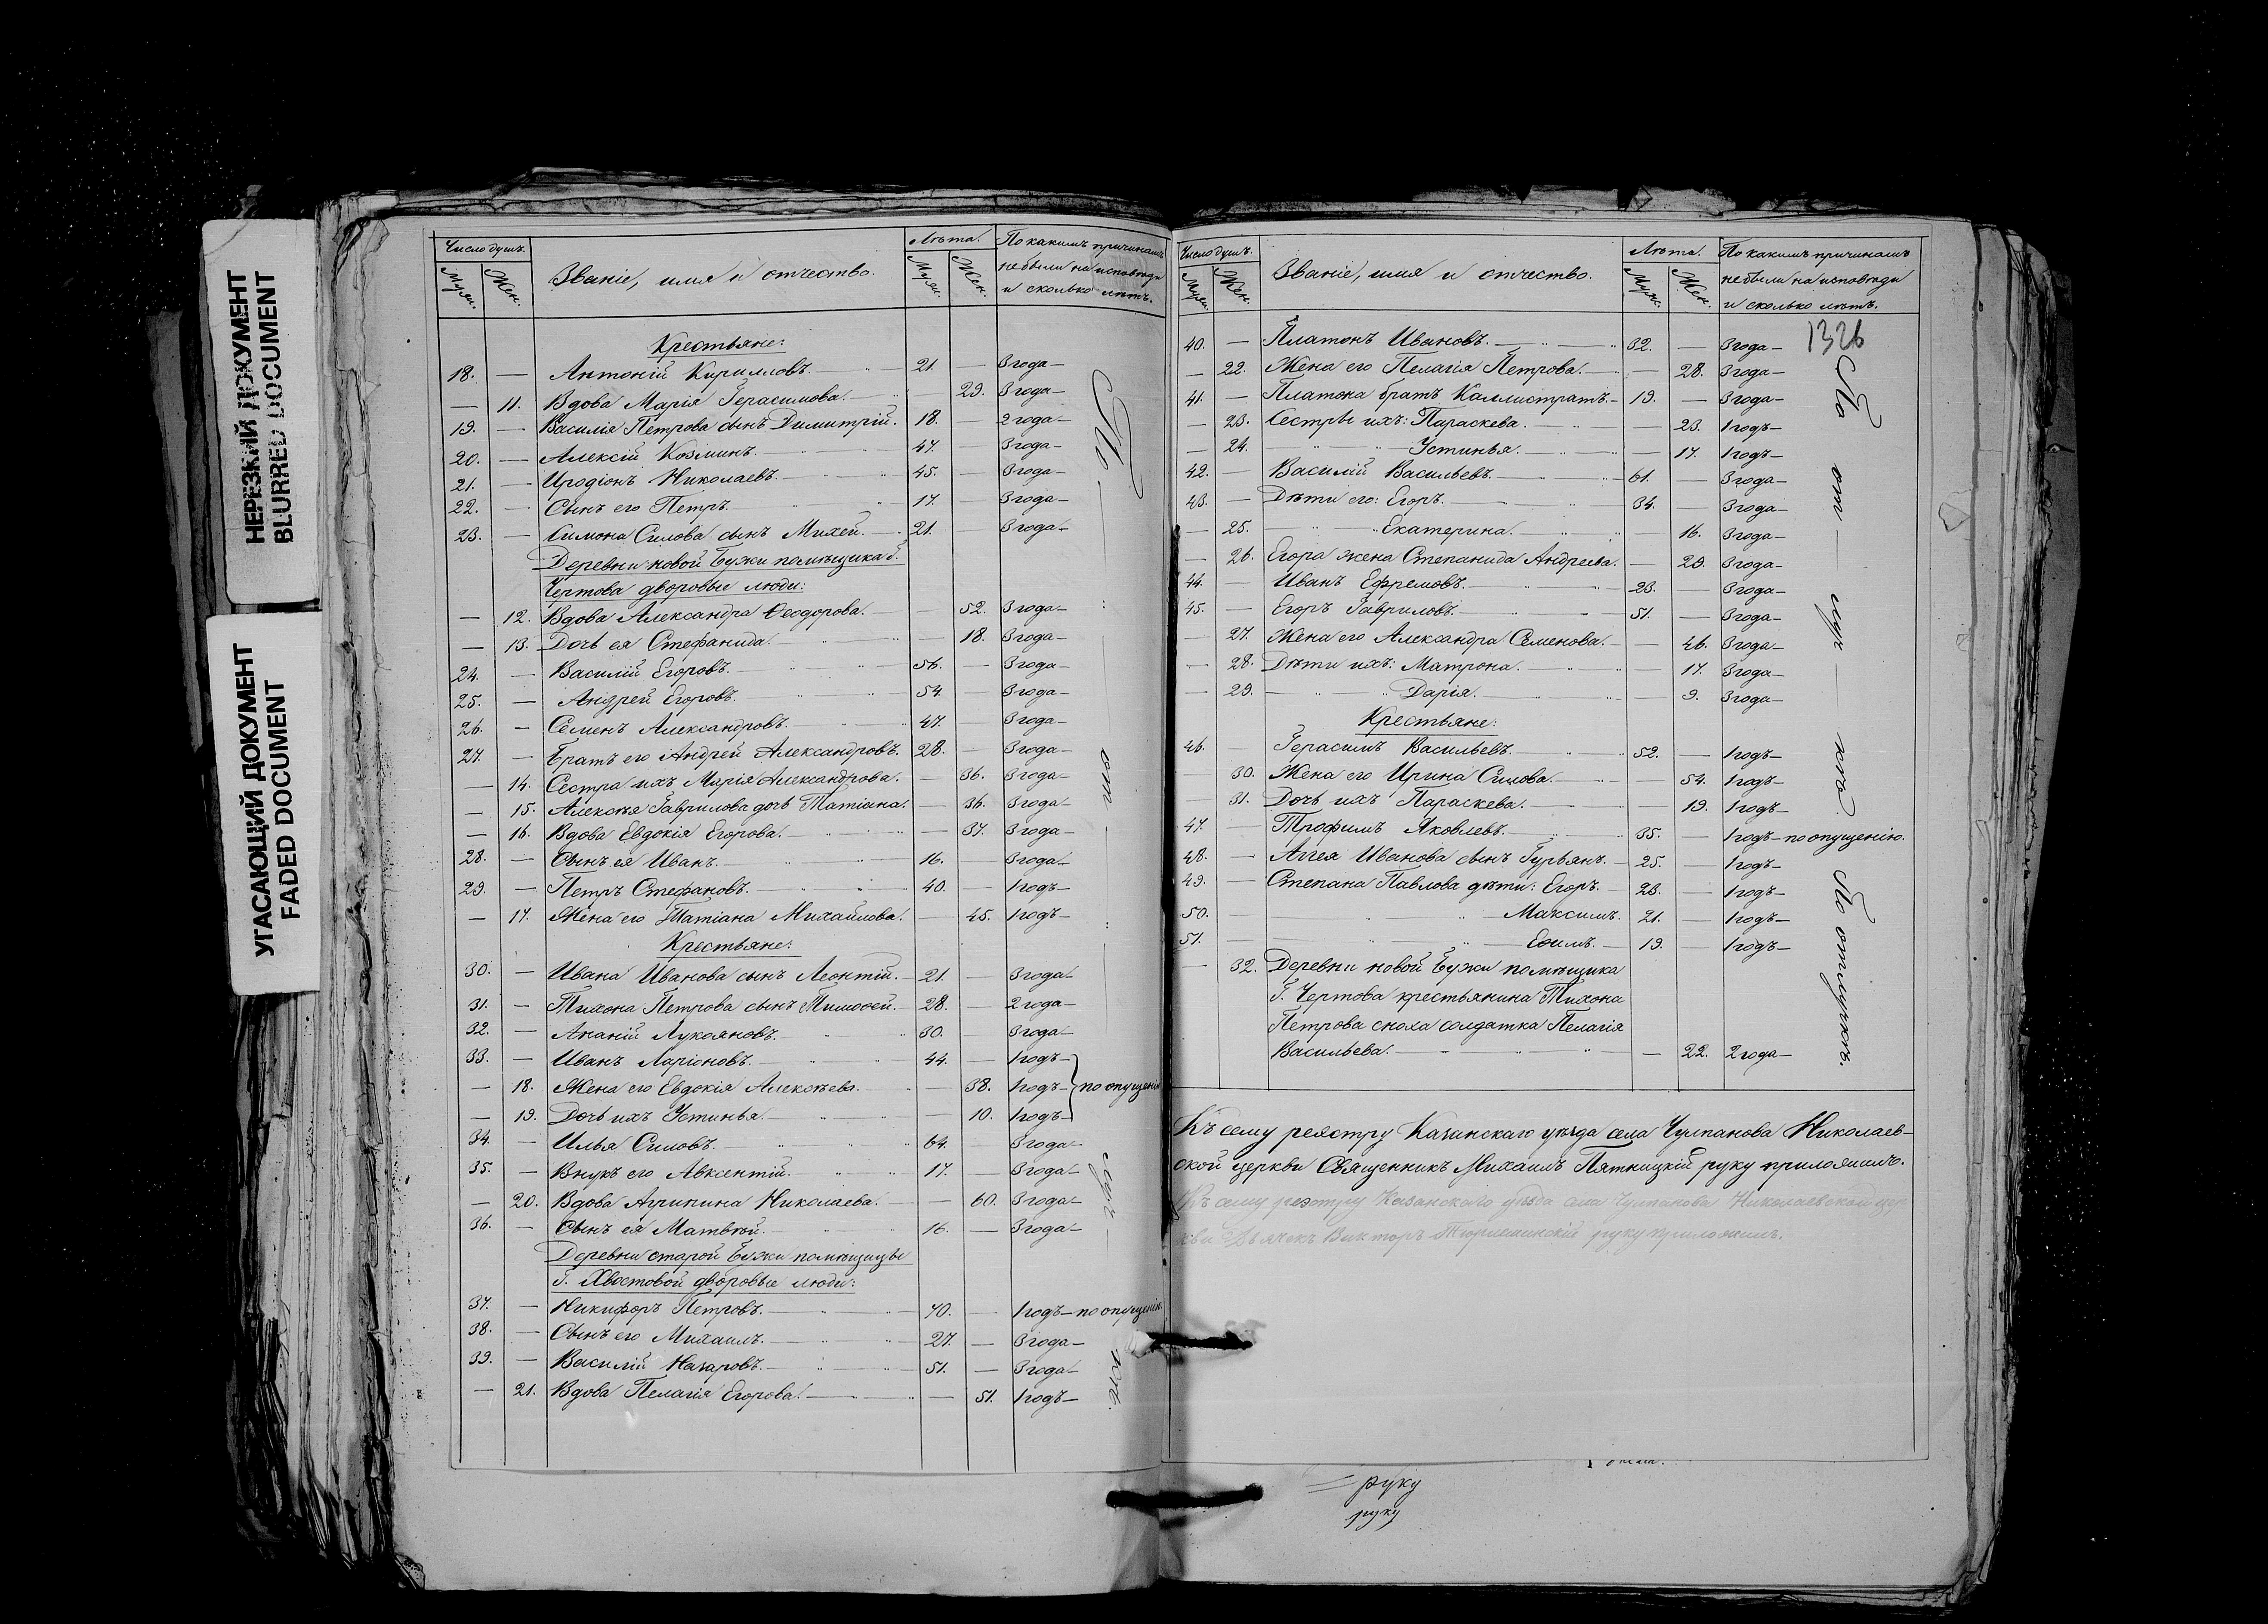 НЕРЕЗКИЙ ДОКУМЕНТ
BLURRED DOCUMENT
УГАСАЮЩИЙ ДОКУМЕНТ
FADED DOCUMENT
Число душъ. Званіе, имя и отчество. Лѣта. По какимъ причинамъ
Муж. Жен. Муж. Жен. не были на исповѣди
и сколько лѣтъ.
Крестьяне:
18. — Антоній Кирилловъ. 21. — 3 года —
— 11. Вдова Марія Герасимова. — 29. 3 года —
19. — Василія Петрова сынъ Димитрій. 18. — 2 года —
20. — Алексій Козминъ. 47. 3 года —
21. — Иродіонъ Николаевъ. 45. — 3 года —
22. — Сынъ его Петръ. 17. 3 года —
23. — Симона Силова сынъ Михей. 21. 3 года —
Деревни новой Бужи помѣщика г.
Чертова дворовые люди:
— 12. Вдова Александра Ѳеодорова. — 52. 3 года —
— 13. Дочь ея Стефанида. — 18. 3 года —
24. — Василій Егоровъ. 56. — 3 года —
25. — Андрей Егоровъ. 54. — 3 года —
26. — Семенъ Александровъ. 47. 3 года —
27. — Братъ его Андрей Александровъ. 28. — 3 года —
— 14. Сестра ихъ Марія Александрова. — 36. 3 года —
— 15. Алексѣя Гаврилова дочь Татіана. — 36. 3 года —
— 16. Вдова Евдокія Егорова. — 37. 3 года —
28. — Сынъ ея Иванъ. 16. 3 года —
29. — Петръ Стефановъ. 40. — 1 годъ —
— 17. Жена его Татіана Михайлова. — 45. 1 годъ —
Крестьяне:
30. — Ивана Иванова сынъ Леонтій. 21. — 3 года —
31. — Тихона Петрова сынъ Тимоѳей. 28. — 2 года —
32. — Ананій Лукояновъ. 30. — 3 года —
33. — Иванъ Ларіоновъ. 44. — 1 годъ —
— 18. Жена его Евдокія Алексѣева. — 38. 1 годъ — по опущенію
— 19. Дочь ихъ Устинья. — 10. 1 годъ —
34. — Илья Силовъ. 64. 3 года —
35. — Внукъ его Авксентій. 17. — 3 года —
— 20. Вдова Агрипина Николаева. — 60. 3 года —
36. — Сынъ ея Матвѣй. 16. — 3 года —
Деревни старой Бужи помѣщицы
г. Хвостовой дворовые люди:
37. — Никифоръ Петровъ. 70. — 1 годъ — по опущенію.
38. — Сынъ его Михаилъ. 27. — 3 года —
39. — Василій Назаровъ. 51. — 3 года —
— 21. Вдова Пелагія Егорова. — 51. 1 годъ —
По — от — луч — кѣ.
Число душъ. Званіе, имя и отчество. Лѣта. По какимъ причинамъ
Муж. Жен. Муж. Жен. не были на исповѣди
и сколько лѣтъ.
1326
40. — Платонъ Ивановъ. 32. — 3 года —
— 22. Жена его Пелагія Петрова. — 28. 3 года —
41. — Платона братъ Каллистратъ. 19. — 3 года —
— 23. Сестры ихъ: Параскева. — 23. 1 годъ —
— 24. Устинья. — 17. 1 годъ —
42. — Василій Васильевъ. 61. — 3 года —
43. — Дѣти его: Егоръ. 34. — 3 года —
— 25. Екатерина. — 16. 3 года —
— 26. Егора жена Степанида Андреева. — 29. 3 года —
44. — Иванъ Ефремовъ. 23. — 3 года —
45. — Егоръ Гавриловъ. 51. — 3 года —
— 27. Жена его Александра Семенова. — 46. 3 года —
— 28. Дѣти ихъ: Матрона. — 17. 3 года —
— 29. Дарія. — 9. 3 года —
Крестьяне:
46. Герасимъ Васильевъ. 52. — 1 годъ —
30. Жена его Ирина Силова. — 54. 1 годъ —
— 31. Дочь ихъ Параскева. — 19. 1 годъ —
47. — Трофимъ Яковлевъ. 35. — 1 годъ — по опущенію.
48. — Аггея Иванова сынъ Гурьянъ. 25. — 1 годъ —
49. — Степана Павлова дѣти: Егоръ. 23. — 1 годъ —
50. Максимъ. 21. — 1 годъ —
51. — Еѳимъ. 19. — 1 годъ —
— 32. Деревни новой Бужи помѣщика
г. Чертова крестьянина Тихона
Петрова сноха солдатка Пелагія
Васильева. — 22. 2 года —
По от — луч — кѣ. По отлучкѣ.
Къ сему реэстру Казанскаго уѣзда села Чулпанова Николаев-
ской церкви Священникъ Михаилъ Пятницкій руку приложилъ.
Къ сему реэстру Казанскаго уѣзда села Чулпанова Николаевской цер
кви Дьячекъ Викторъ руку приложилъ.
руку
руку